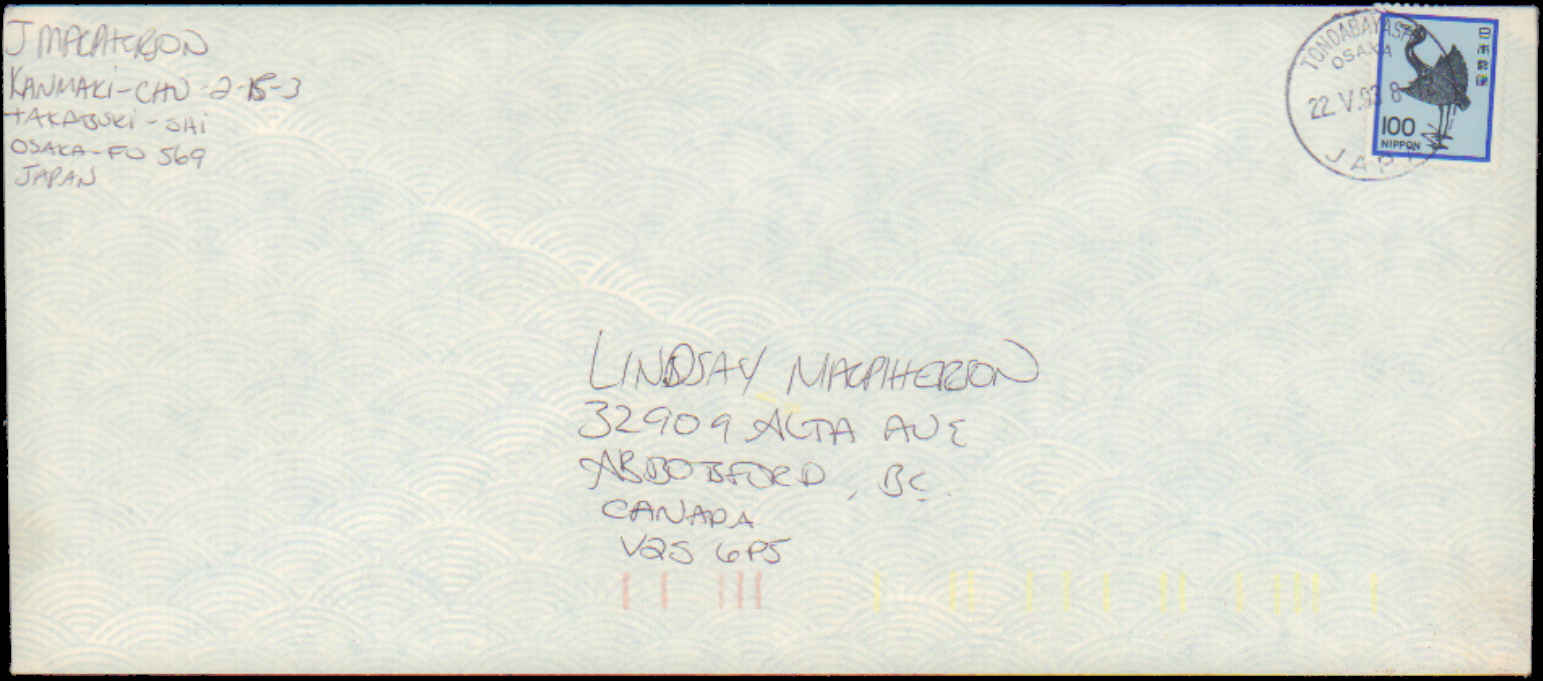 J MACPHERSON
KANMAKI-CHO 2-15-3
TAKATSUKI-SHI
OSAKA-FU 569
JAPAN
TONDABAYASHI
OSAKA
22.V.93 8
JAPAN
日本郵便
100
NIPPON
LINDSAY MACPHERSON
32909 ALTA AVE
ABBOTSFORD, BC
CANADA
V2S 6P5